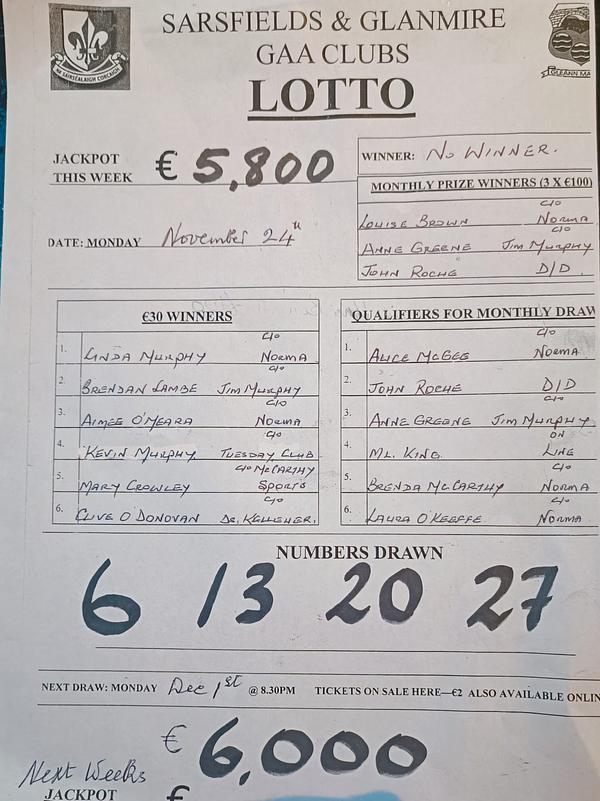 SARSFIELDS & GLANMIRE
GAA CLUBS
LOTTO
NA SAIRSEALAIGH CORCAIGH
GLEANN MA
JACKPOT
THIS WEEK € 5,800
WINNER: NO WINNER.
MONTHLY PRIZE WINNERS (3 X €100)
DATE: MONDAY November 24th
c/o
LOUISE BROWN NORMA
c/o
ANNE GREENE JIM MURPHY
JOHN ROCHE D/D
€30 WINNERS
c/o
1. LINDA MURPHY NORMA
c/o
2. BRENDAN LAMBE JIM MURPHY
c/o
3. AIMEE O'MEARA NORMA
c/o
4. KEVIN MURPHY TUESDAY CLUB
c/o McCARTHY
5. MARY CROWLEY SPORTS
c/o
6. CLIVE O DONOVAN DR. KELLEHER.
QUALIFIERS FOR MONTHLY DRAW
c/o
1. ALICE McGEE NORMA
2. JOHN ROCHE D/D
c/o
3. ANNE GREENE JIM MURPHY
ON
4. ML. KING LINE
c/o
5. BRENDA McCARTHY NORMA
c/o
6. LAURA O'KEEFFE NORMA
NUMBERS DRAWN
6 13 20 27
NEXT DRAW: MONDAY Dec 1st @ 8.30PM TICKETS ON SALE HERE—€2 ALSO AVAILABLE ONLIN
€ 6,000
Next Weeks
JACKPOT €